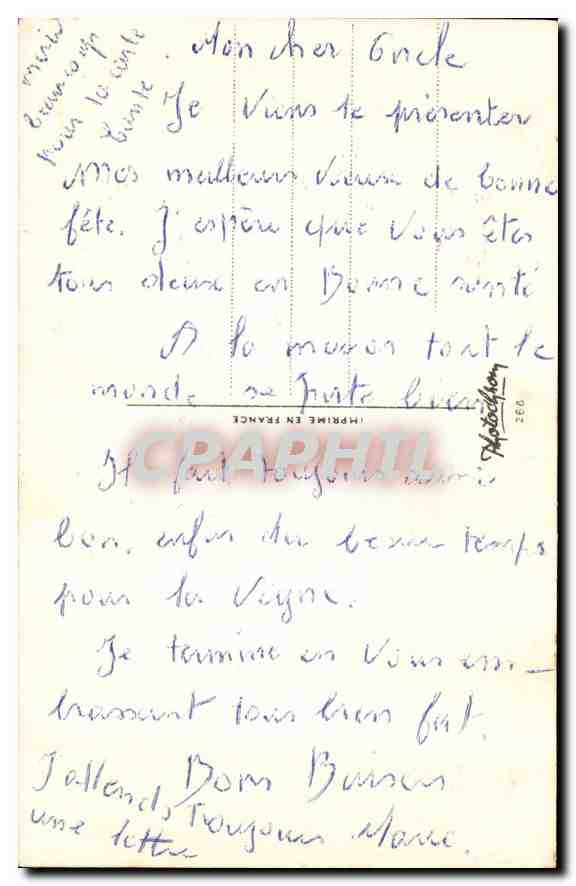 merci
beaucoup
pour la carte
tante
Mon cher Oncle
Je viens te présenter
Mes meilleurs vœux de bonne
fête. J'espère que vous êtes
tous deux en Bonne santé
A la maison tout le
monde se porte bien
IMPRIME EN FRANCE
Photochrom
266
CPARPHIL
Il fait toujours
bon, enfin du beau temps
pour la vigne.
Je termine en vous em-
brassant tous bien fort.
Bons Baisers
J'attends toujours Marie.
une lettre